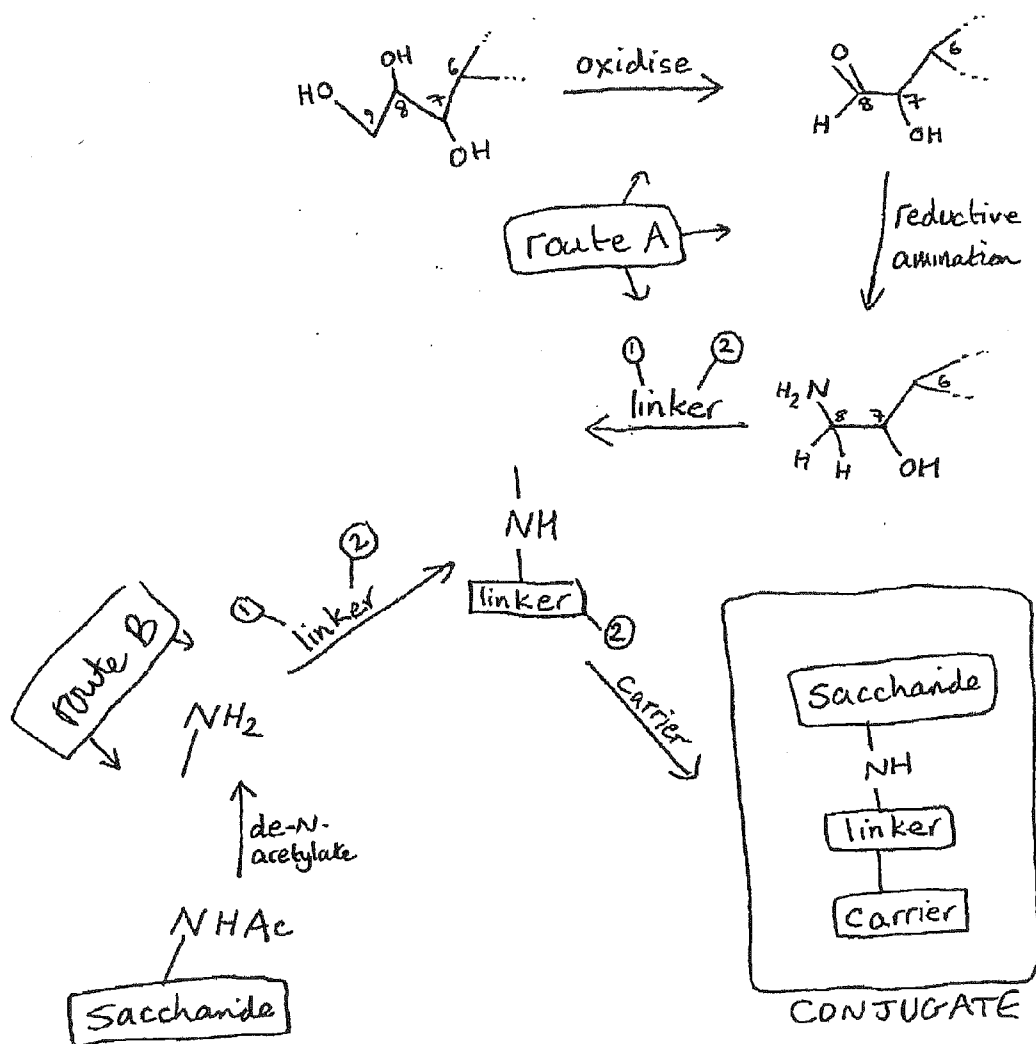 OH
HO
9
8
7
6
OH
oxidise
O
H
8
7
6
OH
route A
reductive
amination
1
2
linker
H2N
8
7
6
H
H
OH
NH
linker
2
route B
1
2
linker
NH2
carrier
de-N-
acetylate
NHAc
Saccharide
Saccharide
NH
linker
Carrier
CONJUGATE